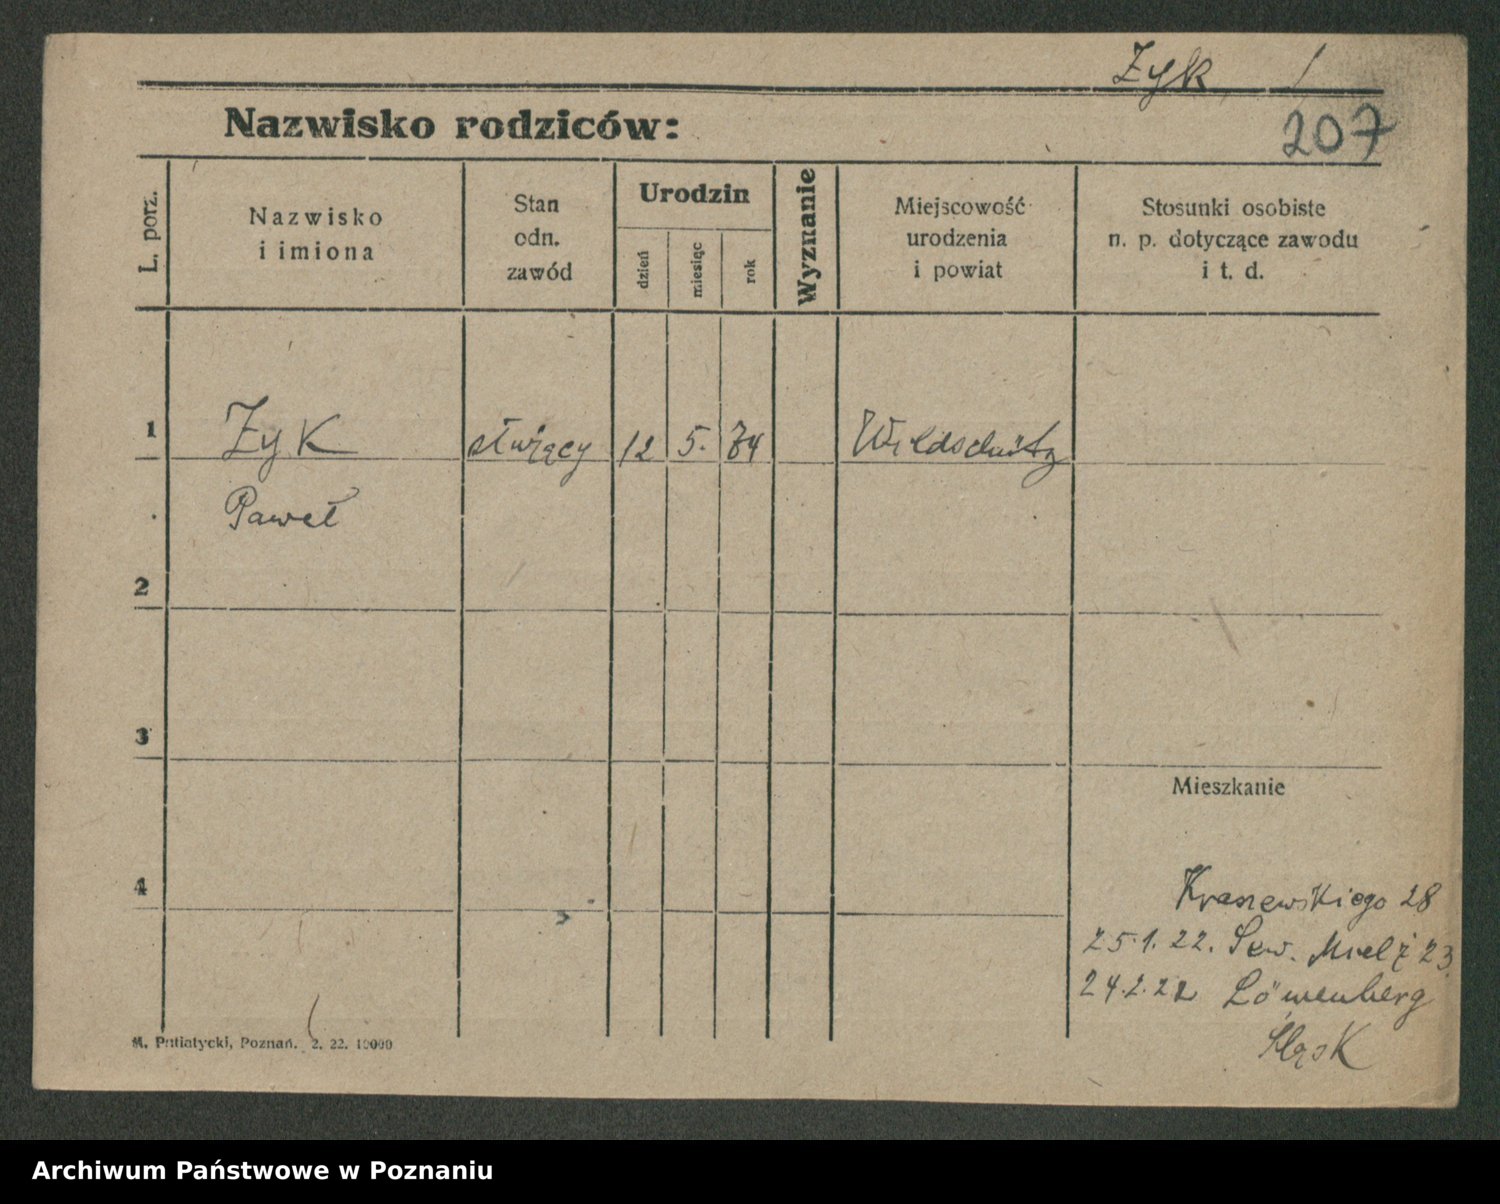 Zyk 1
207
Nazwisko rodziców:
L. porz.
Nazwisko
i imiona
Stan
odn.
zawód
Urodzin
dzień
miesiąc
rok
Wyznanie
Miejscowość
urodzenia
i powiat
Stosunki osobiste
n. p. dotyczące zawodu
i t. d.
1 Zyk służący 12 5. 74 Wildschütz
Paweł
2
3
Mieszkanie
4
Kraszewskiego 28
25.1.22. Sew. Miel ż 23.
24.2.22 Löwenberg
Śląsk
M. Putiatycki, Poznań. 2. 22. 10000
Archiwum Państwowe w Poznaniu